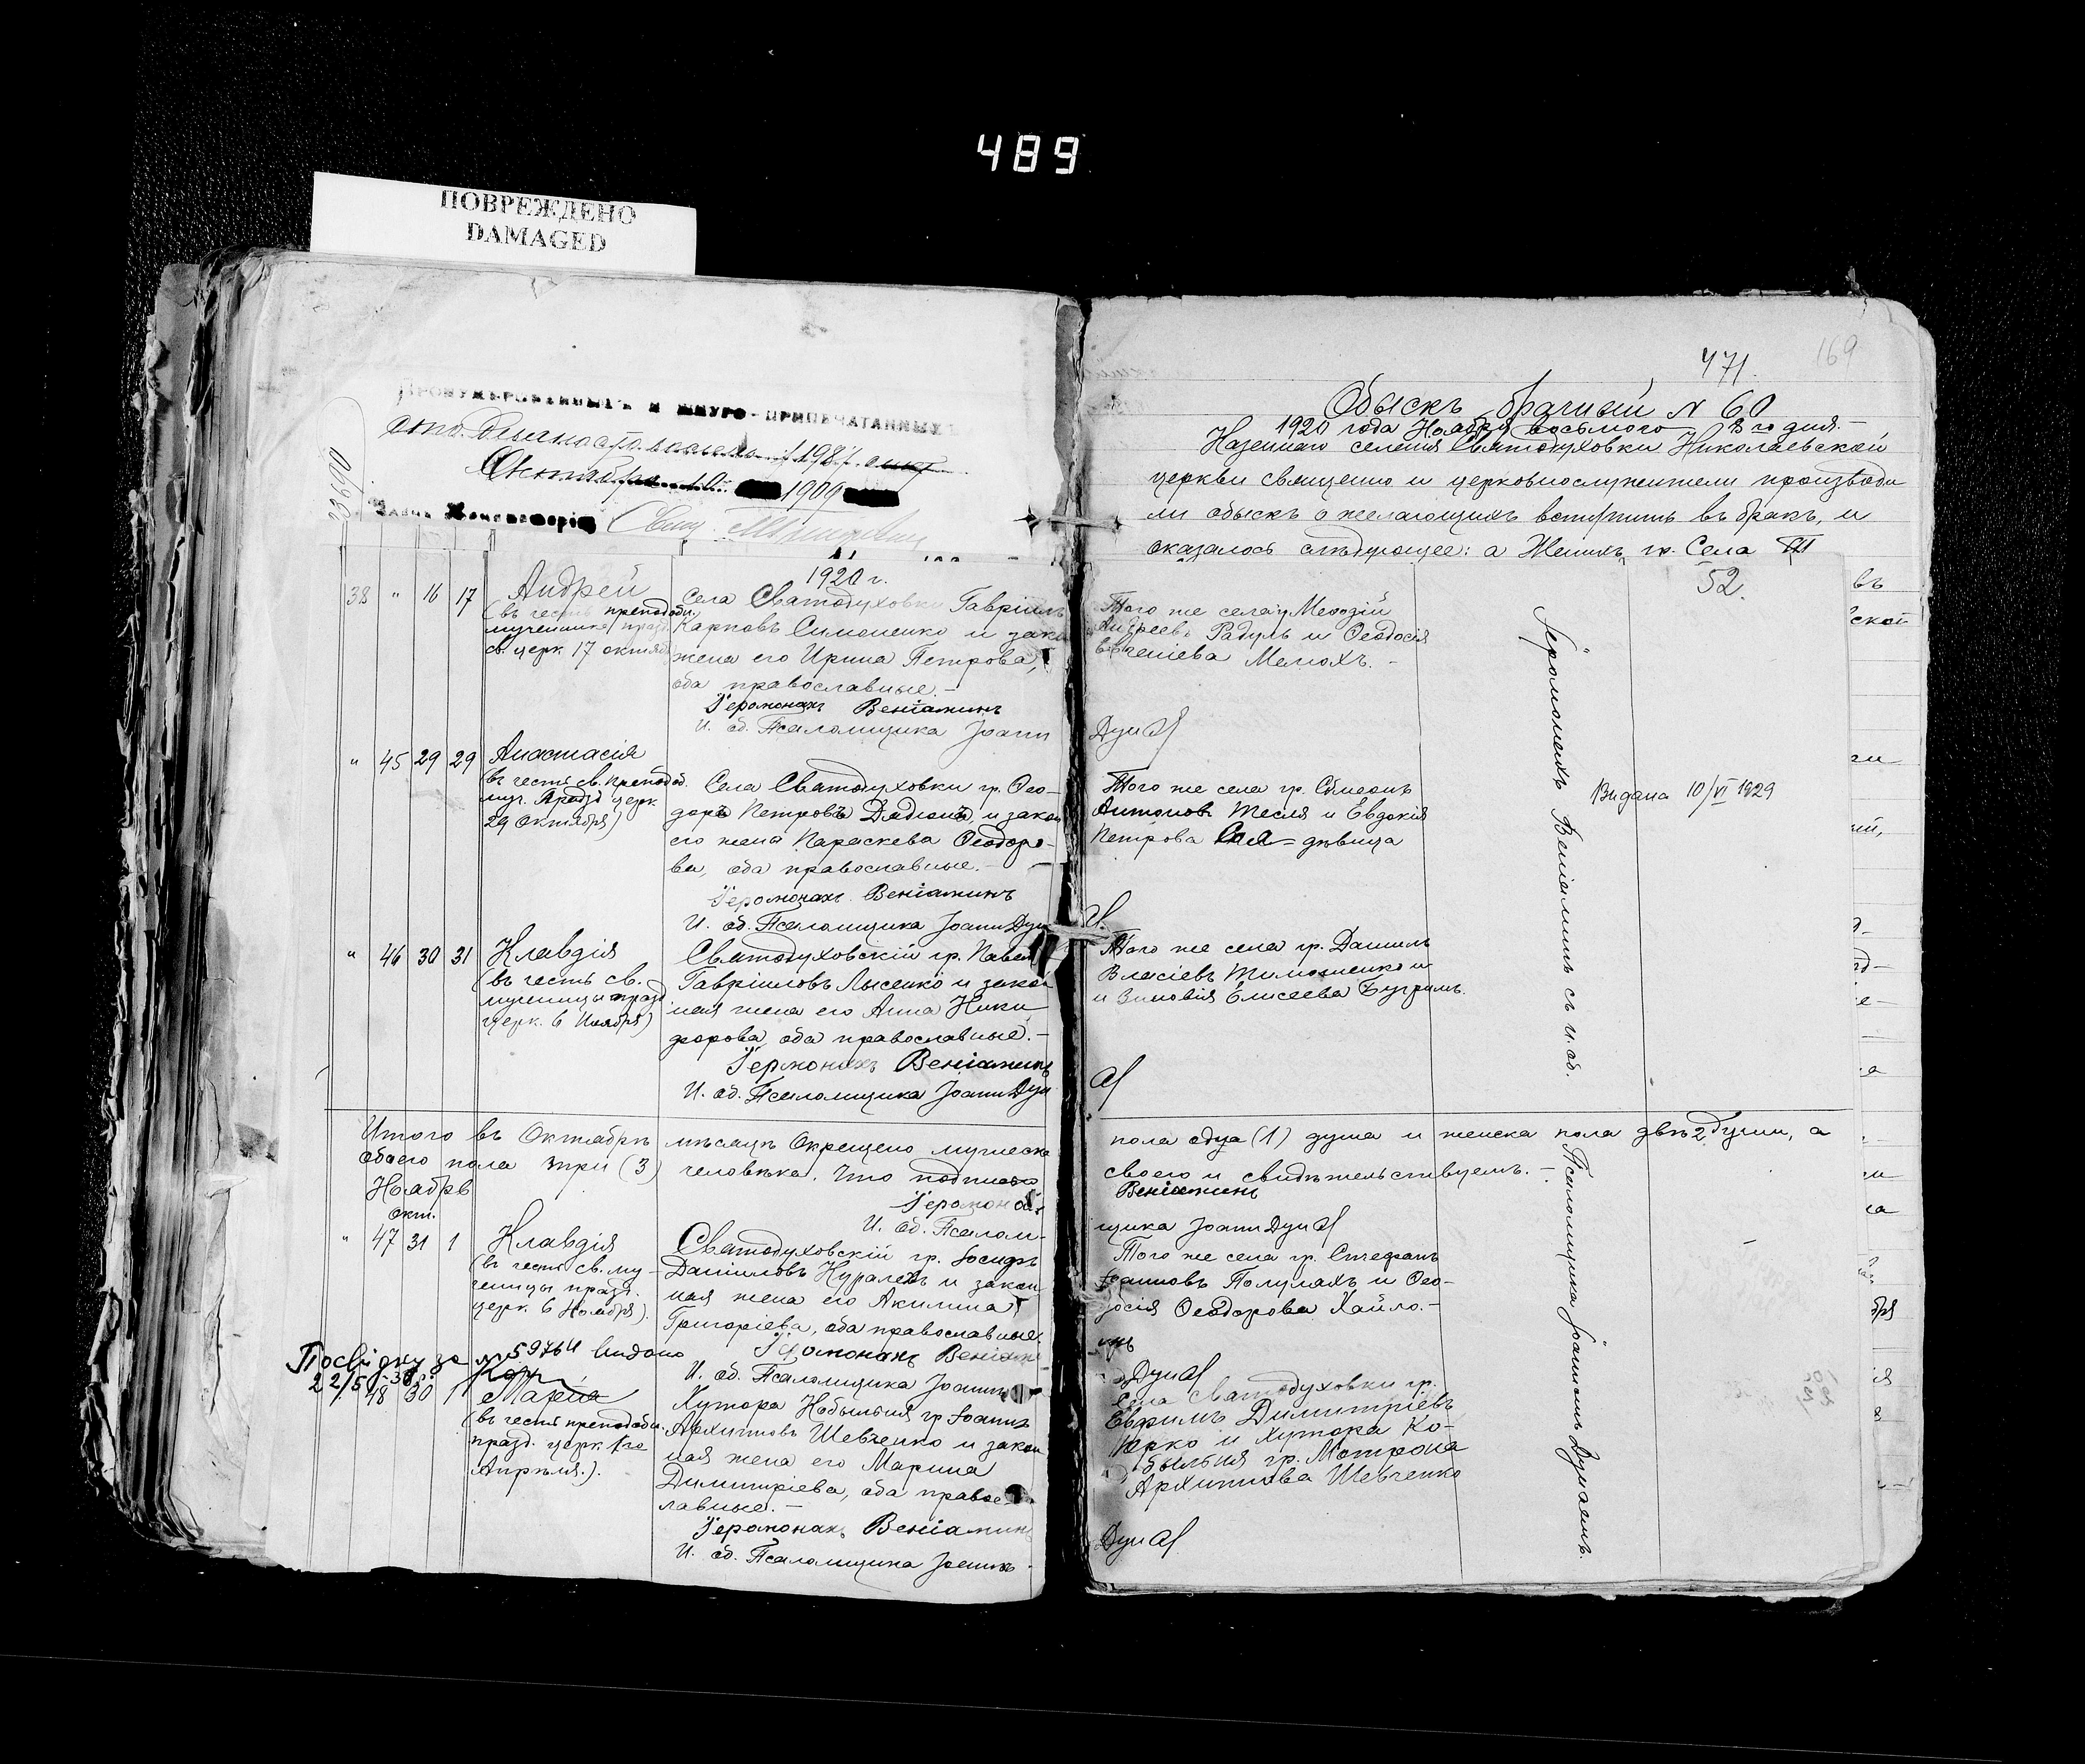 489
ПОВРЕЖДЕНО
DAMAGED
Пронумерованныхъ и шнуро-припечатанныхъ
1909
169
471.
Обыскъ брачный № 60
1920 года Ноября восьмого 8 го дня.-
Казеннаго селенія Святодуховки Николаевской
церкви священно и церковнослужители производи
ли обыскъ о желающихъ вступить въ бракъ, и
оказалось слѣдующее: а Женихъ гр. Села
1920 г.
52.
38 " 16 17 Андрей
(въ честь преподобн.
мученика празд.
св. церк. 17 октяб.
Села Святодуховки Гавріилъ
Карповъ Симоненко и зако
жена его Ирина Петрова,
оба православные.-
Іеромонахъ Веніаминъ
И. об. Псаломщика Іоаннъ
Того же села Меѳодій
Андреевъ Радуль и Ѳеодосія
Мелюхъ.-
Дун
" 45 29 29 Анастасія
(въ честь св. преподоб.
муч. празд. церк.
29 Октября)
Села Святодуховки гр. Ѳео-
доръ Петровъ Дядюнъ и закон
его жена Параскева Ѳеодоро-
ва, оба православные.-
Іеромонахъ Веніаминъ
И. об. Псаломщика Іоаннъ Дун
Того же села гр. Сѵмеонъ
Антоновъ Тесля и Евдокія
Петрова дѣвица
Видана 10/VI 1929
" 46 30 31 Клавдія
(въ честь св.
мученицы празд.
церк. 6 Ноября)
Святодуховскій гр. Павелъ
Гавріиловъ Лысенко и закон
ная жена его Анна Ники
форова, оба православные.-
Іеромонахъ Веніаминъ
И. об. Псаломщика Іоаннъ Дун
Того же села гр. Даніилъ
Власіевъ Тимошенко и
и Зиновія Елисеева Бугримъ.
Іеромонахъ Веніаминъ съ и. об.
Псаломщика Іоанномъ Дунаемъ.
Итого въ Октябрѣ мѣсяцѣ Окрещено мужеска пола одна (1) душа и женска пола двѣ 2 души, а
обоего пола три (3) человѣка. Что подписо своего и свидѣтельствуемъ.-
Іеромонахъ Веніаминъ
И. об. Псаломщика Іоаннъ Дун
Ноябрь
Окт.
" 47 31 1 Клавдія
(въ честь св. му-
ченицы празд.
церк. 6 Ноября).
Святодуховскій гр. Іосифъ
Даніиловъ Журавель и закон
ная жена его Акилина
Григоріева, оба православные.
Іеромонахъ Веніамин
И. об. Псаломщика Іоаннъ
Того же села гр. Стефанъ
Іоанновъ Полуляхъ и Ѳео-
досія Ѳеодорова Хайло.-
Дун
Посвідку за № 59764 видано
22/5 -38 р.
48 30 1 Марія
(въ честь преподобн.
празд. церк. 1 го
Апрѣля.).
Хутора Кобыльня гр. Іоаннъ
Архиповъ Шевченко и закон
ная жена его Марина
Димитріева, оба право-
славные.-
Іеромонахъ Веніаминъ
И. об. Псаломщика Іоаннъ
Села Святодуховки гр.
Евфимъ Димитріевъ
Юрко и хутора Ко-
быльня гр. Матрона
Архипова Шевченко
Дун